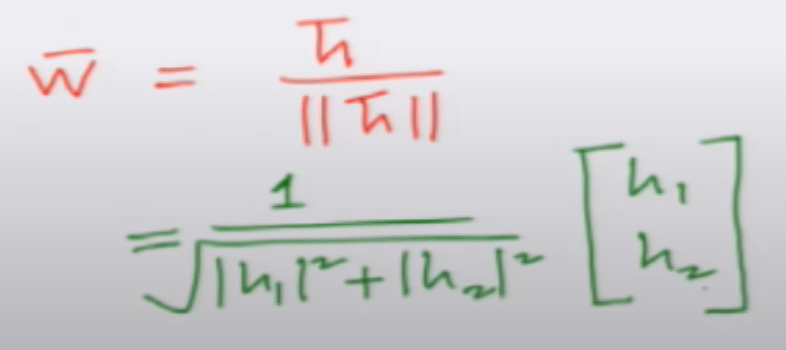 w̄ = h̄ / ||h̄||
= 1 / √(|h₁|² + |h₂|²) [h₁ h₂]